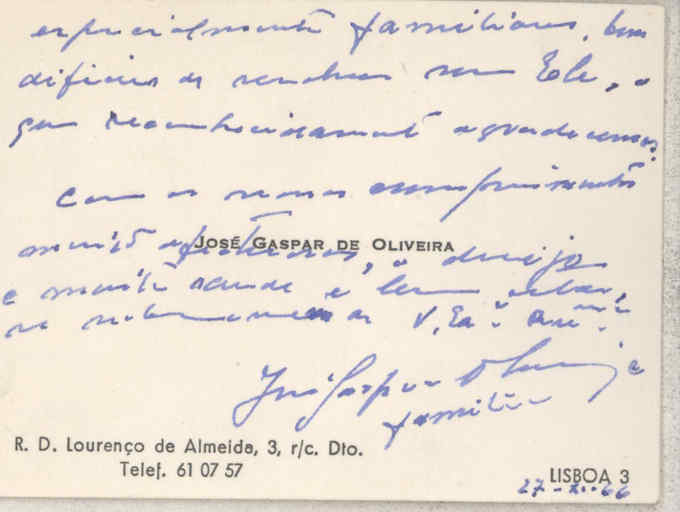 especialmente familiares, bem
difíceis de resolver sem Ele, o
que reconhecidamente agradecemos.
Com os nossos cumprimentos
muito afectuosos, e desejo
JOSÉ GASPAR DE OLIVEIRA
de muita saude e bem estar,
V. Exª
José Gaspar Oliveira e
família
R. D. Lourenço de Almeida, 3, r/c. Dto.
Telef. 61 07 57
LISBOA 3
27-XI-66